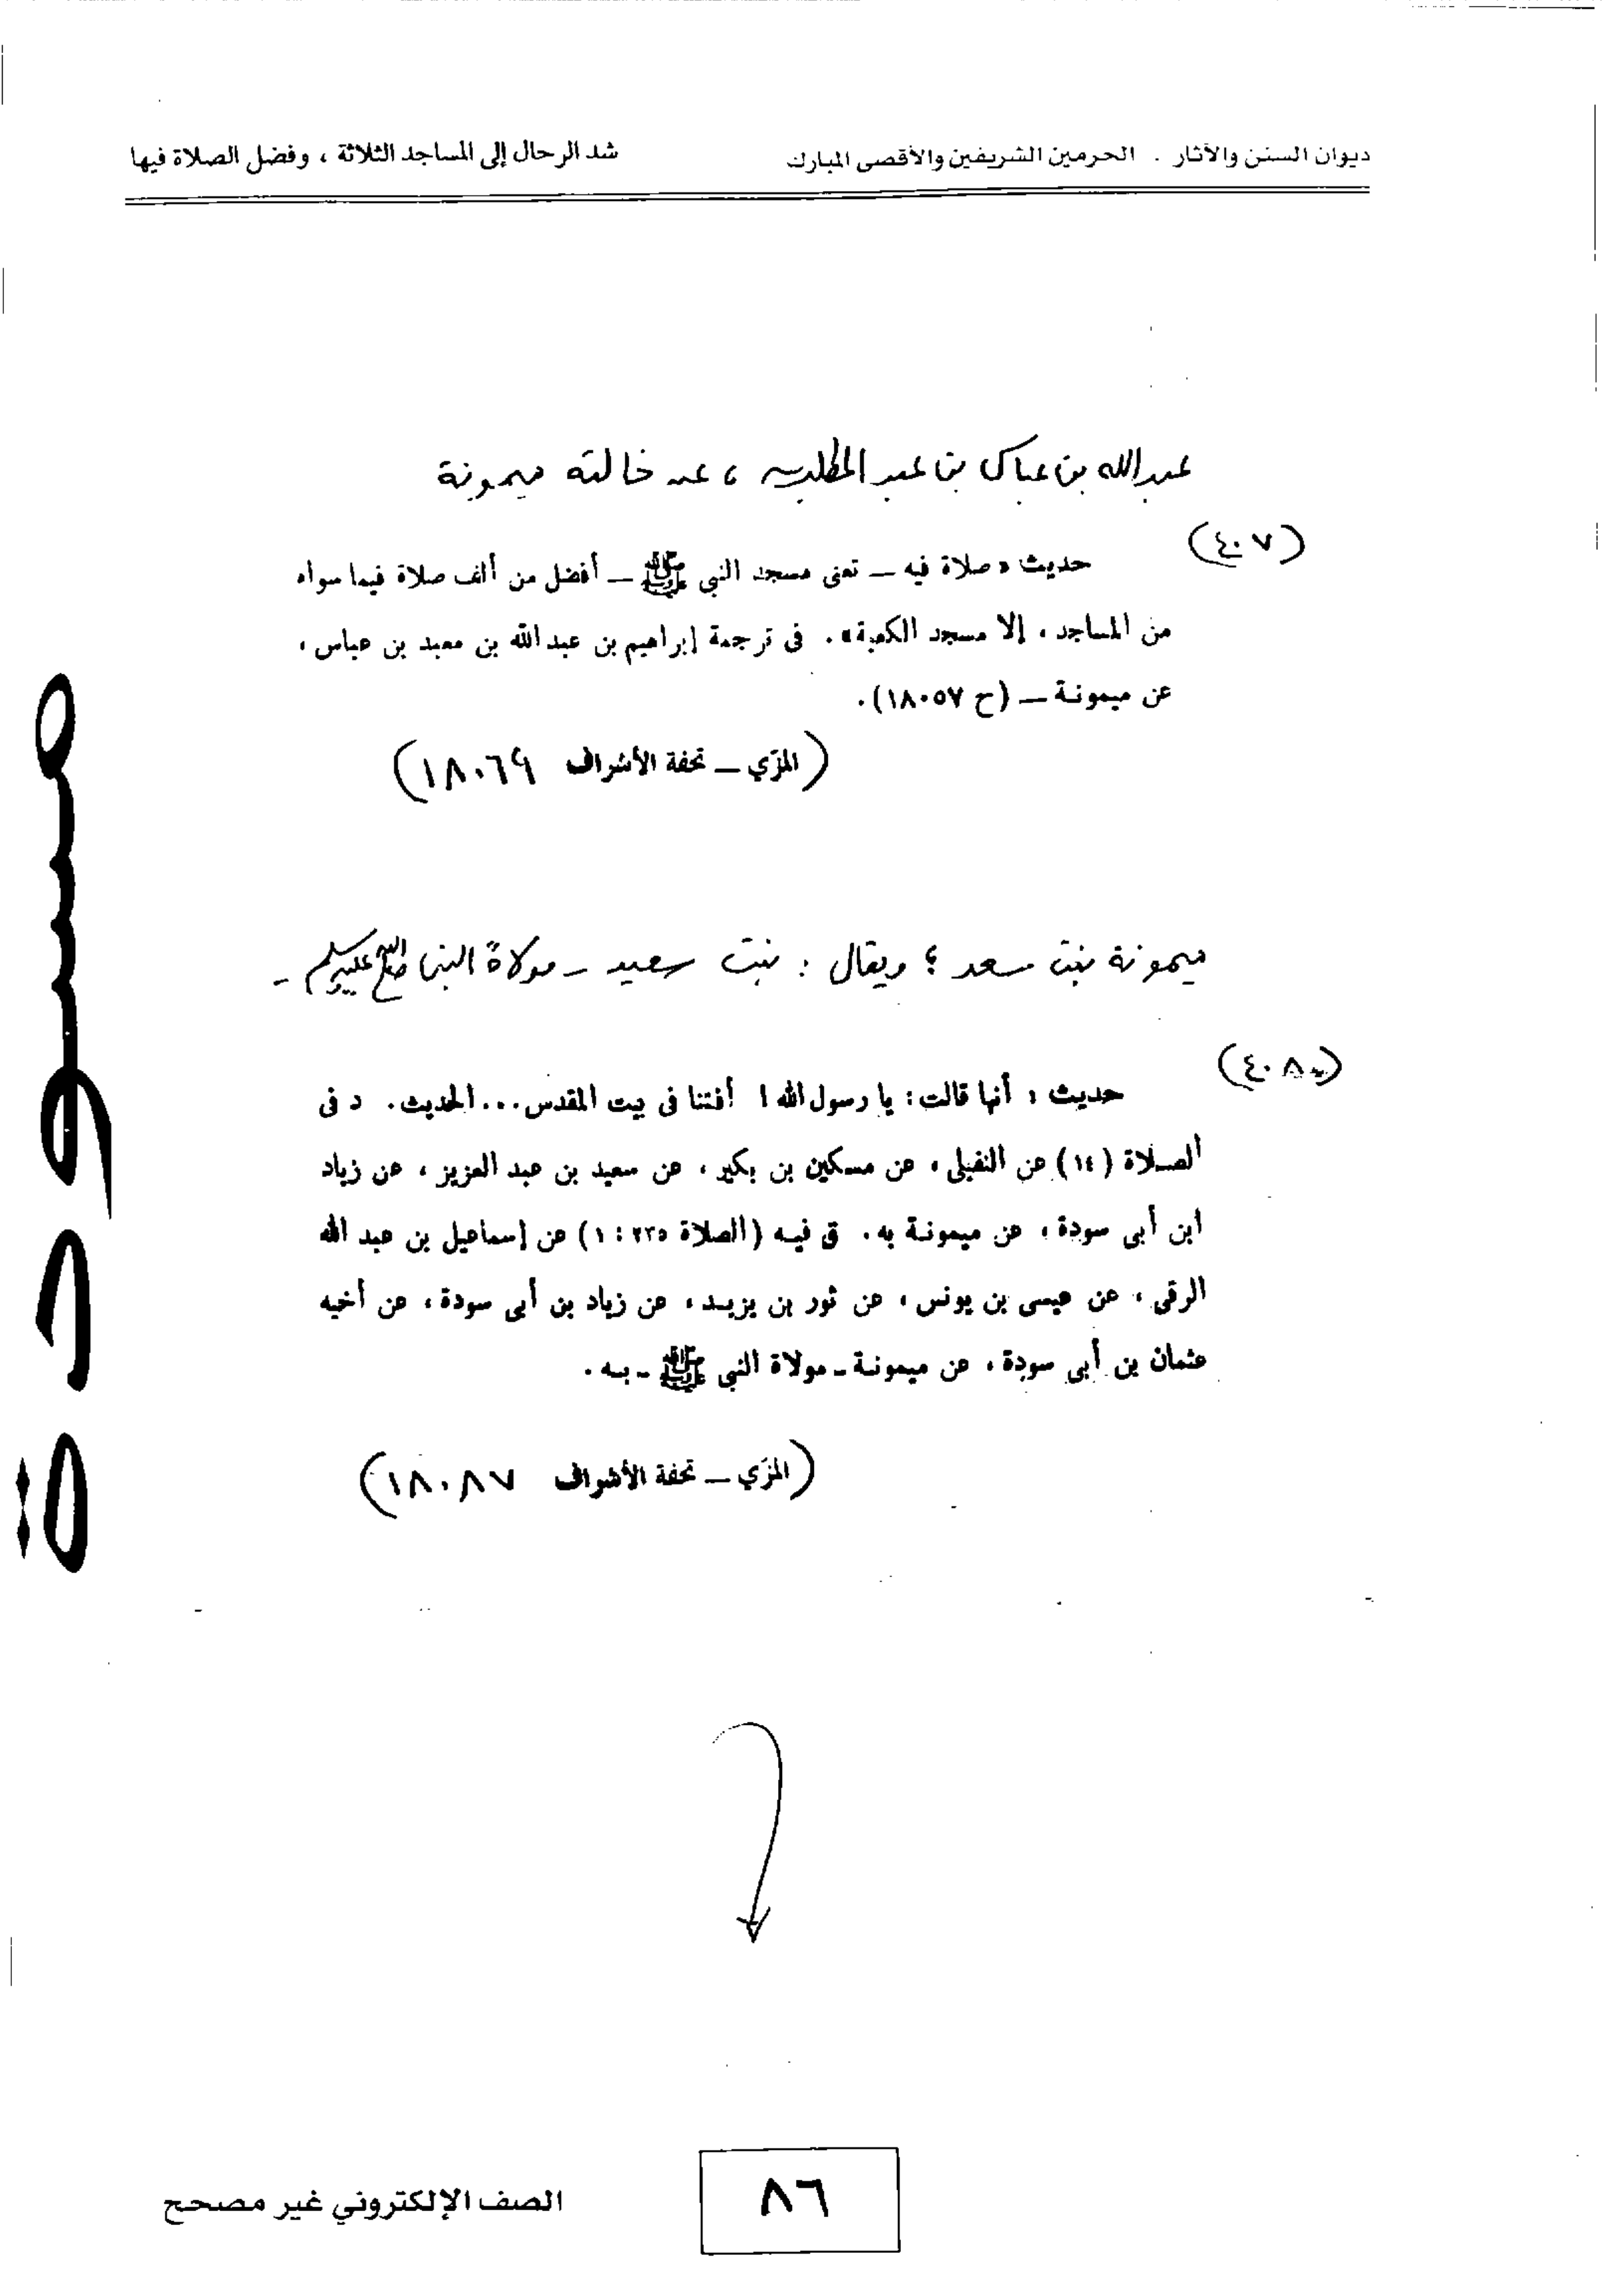 ديوان السنن والآثار . الحرمين الشريفين والأقصى المبارك
شد الرحال إلى المساجد الثلاثة ، وفضل الصلاة فيها
عبد الله بن عباس بن عبد المطلب ، عن خالته ميمونة
(٤٠٧)
حديث «صلاة فيه ــ تعنى مسجد النبي ﷺ ــ أفضل من ألف صلاة فيما سواه
من المساجد ، إلا مسجد الكعبة» . فى ترجمة إبراهيم بن عبد الله بن معبد بن عباس ،
عن ميمونة ــ (ح ١٨٠٥٧) .
(المزّي ــ تحفة الأشراف ١٨٠٦٩)
ميمونة بنت سعد ؛ ويقال : بنت سعيد - مولاة النبي صلى الله عليه وسلم -
(٤٠٨)
حديث : أنها قالت : يا رسول الله ! أفتنا فى بيت المقدس ... الحديث . د فى
الصلاة (١٤) عن النفيلى ، عن مسكين بن بكير ، عن سعيد بن عبد العزيز ، عن زياد
ابن أبى سودة ، عن ميمونة به . ق فيه (الصلاة ٢٣٥ : ١) عن إسماعيل بن عبد الله
الرقى ، عن عيسى بن يونس ، عن ثور بن يزيد ، عن زياد بن أبى سودة ، عن أخيه
عثمان بن أبى سودة ، عن ميمونة - مولاة النبي ﷺ - به .
(المزّي ــ تحفة الأشراف ١٨٠٨٧)
مسودة
٨٦
الصف الإلكتروني غير مصحح